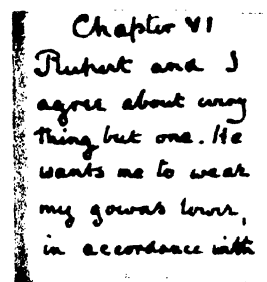 Chapter VI
Rupert and I
agree about every
thing but one. He
wants me to wear
my gowns lower,
in accordance with